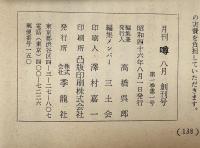 の実費を負担していただきます。
月刊 噂 八月 創刊号
第一巻第一号
昭和四十六年八月一日発行
編集兼
発行人 高橋呉郎
編集メンバー 三土会
印刷人 澤村嘉一
印刷所 凸版印刷株式会社
発行所 株式
会社 季龍社
東京都渋谷区
電話(東京)四〇
郵便番号一五〇
(138)